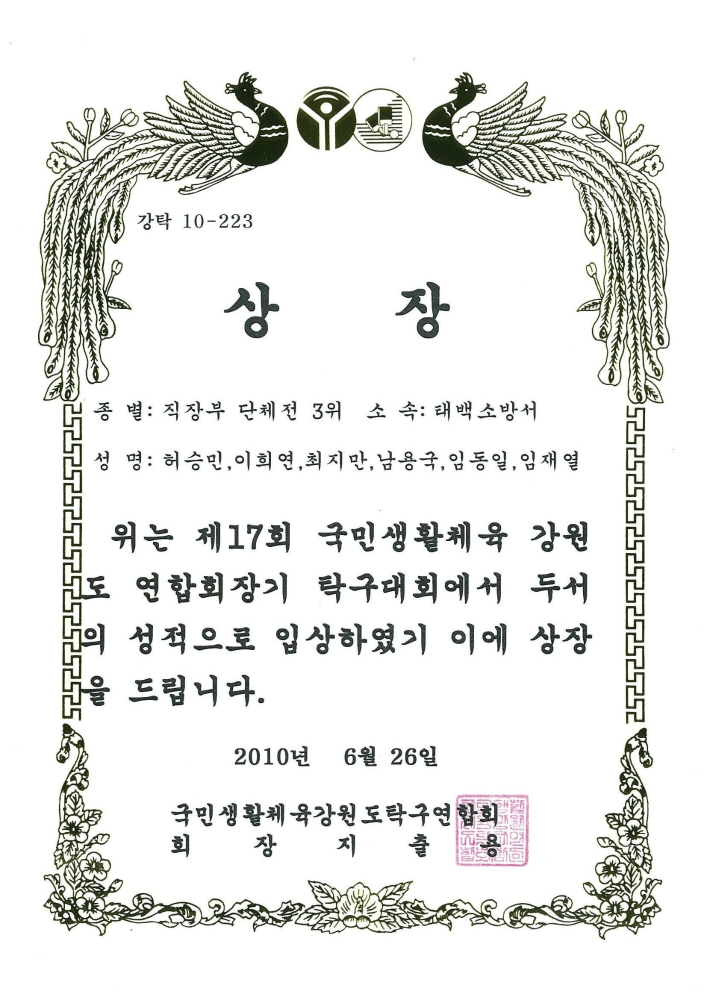 강탁 10-223
상 장
종 별: 직장부 단체전 3위 소 속: 태백소방서
성 명: 허승민,이희연,최지만,남용국,임동일,임재열
위는 제17회 국민생활체육 강원
도 연합회장기 탁구대회에서 두서
의 성적으로 입상하였기 이에 상장
을 드립니다.
2010년 6월 26일
국민생활체육강원도탁구연합회
회 장 지 출 용